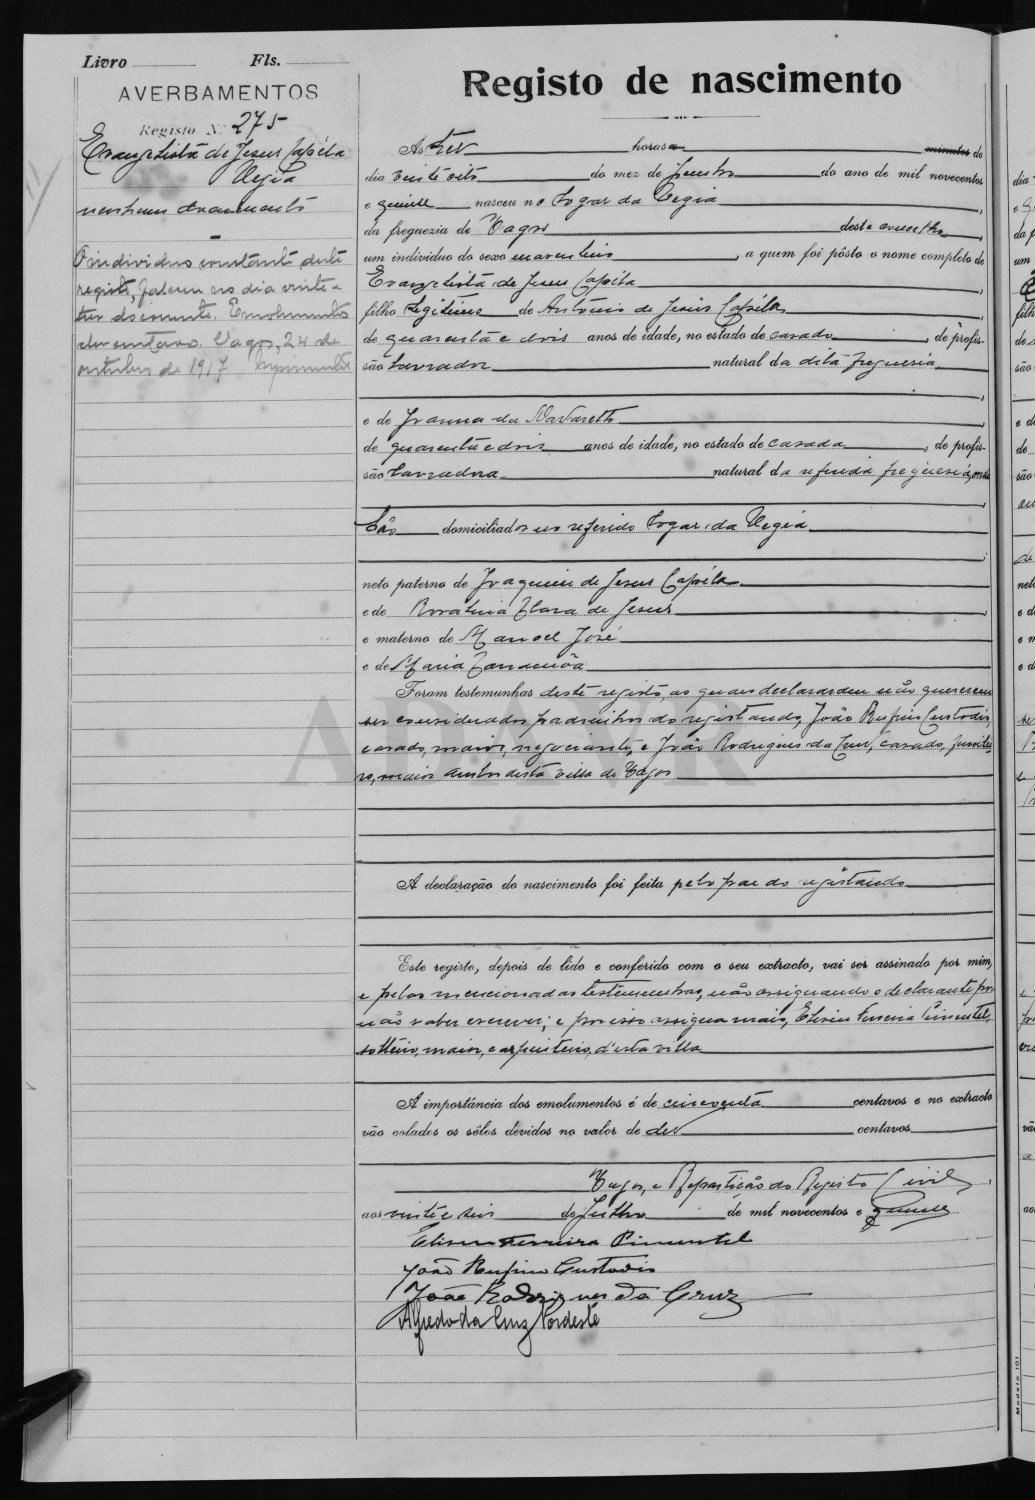 Livro Fls.
AVERBAMENTOS
Registo N.º 275
Evangelista de Jesus Capéla
Vegia
nenhum documento
O individuo constante deste
registo, faleceu no dia vinte e
tres do corrente. Emolumentos
centavos. Vagos, 24 de
outubro de 1917.
Registo de nascimento
Ás dez horas e minutos do
dia vinte oito do mez de Junho do ano de mil novecentos
e quinze nasceu no logar da Vegia
da freguezia de Vagos deste concelho
um individuo do sexo masculino, a quem foi pôsto o nome completo de
Evangelista de Jesus Capéla
filho legitimo de António de Jesus Capéla
de quarenta e dois anos de idade, no estado de casado, de profis-
são lavrador natural da dita freguesia
e de Joanna da Nazareth
de quarenta e dois anos de idade, no estado de casada, de profis-
são lavradora natural da referida freguesia,
São domiciliados no referido logar da Vegia
neto paterno de Joaquim de Jesus Capéla
e de Clara de Jesus
e materno de Manoel José
e de Maria
Foram testemunhas deste registo, as quaes declararam não quererem
ser considerados padrinhos do registando, João Rufino Custodio,
casado, maior, negociante, e João Rodrigues da Cruz, casado,
maior ambos desta villa de Vagos
A declaração do nascimento foi feita pelo pae do registando
Este registo, depois de lido e conferido com o seu extracto, vai ser assinado por mim,
e pelas mencionadas testemunhas, não assignando o declarante por
não saber escrever; e por isso assigna mais, Eliseu Ferreira Pimentel,
solteiro, maior, carpinteiro, d'esta villa
A importância dos emolumentos é de cincoenta centavos e no extracto
vão colados os sêlos devidos no valor de dez centavos
Vagos, e Repartição do Registo Civil,
aos vinte e seis de Julho de mil novecentos e quinze
Eliseu Ferreira Pimentel
João Rufino Custodio
João Rodrigues da Cruz
Alfredo da Cruz Nordeste
ADAVR
Modelo 101